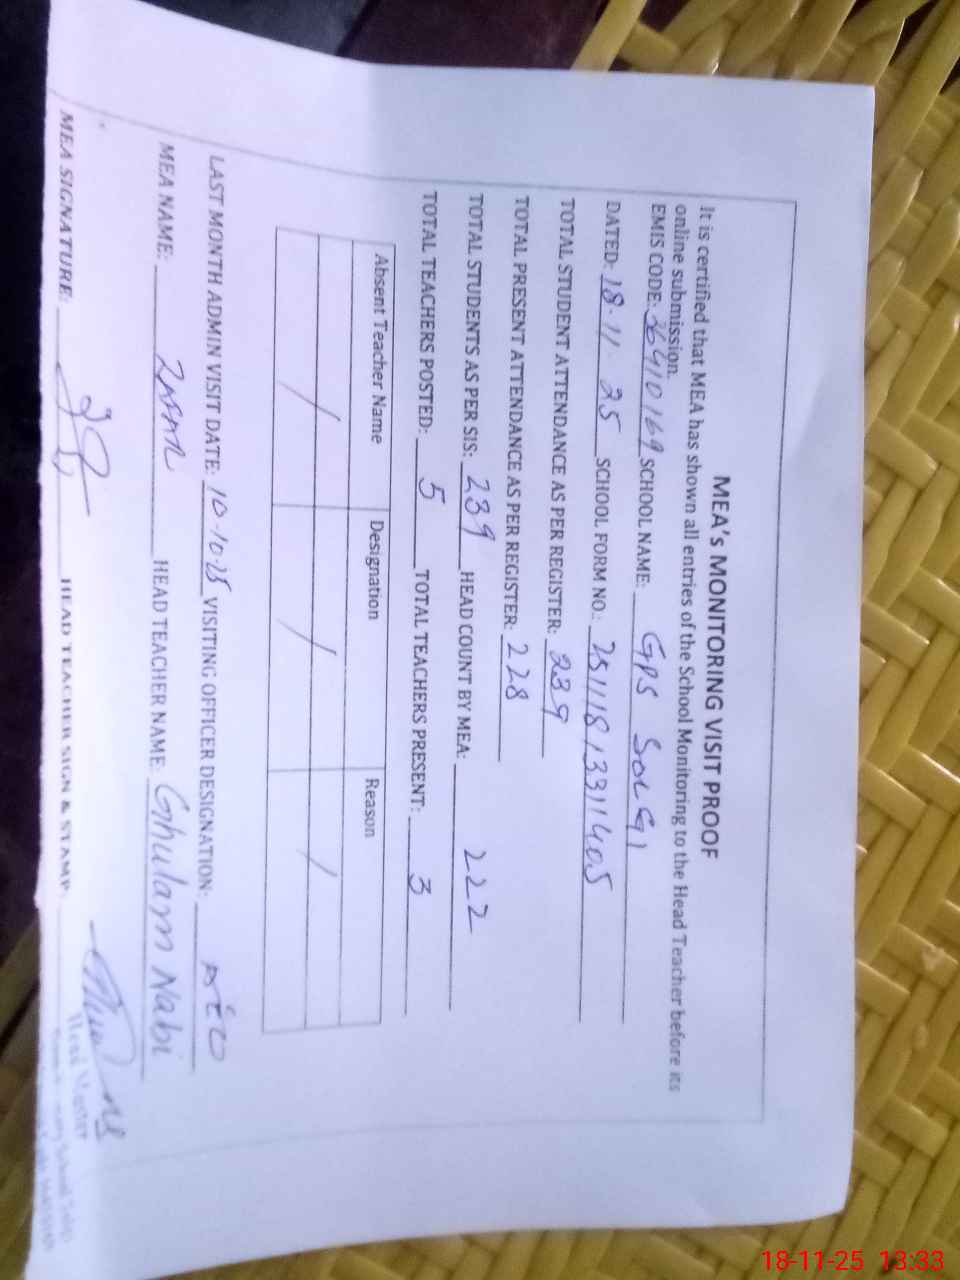 MEA's MONITORING VISIT PROOF
It is certified that MEA has shown all entries of the School Monitoring to the Head Teacher before its
online submission.
EMIS CODE: 36410169 SCHOOL NAME: GPS Solgi
DATED: 18-11-25 SCHOOL FORM NO.: 25111813311405
TOTAL STUDENT ATTENDANCE AS PER REGISTER: 239
TOTAL PRESENT ATTENDANCE AS PER REGISTER: 228
TOTAL STUDENTS AS PER SIS: 239 HEAD COUNT BY MEA: 222
TOTAL TEACHERS POSTED: 5 TOTAL TEACHERS PRESENT: 3
Absent Teacher Name Designation Reason
/ / /
LAST MONTH ADMIN VISIT DATE: 10-10-25 VISITING OFFICER DESIGNATION:
MEA NAME: HEAD TEACHER NAME: Ghulam Nabi
MEA SIGNATURE: HEAD TEACHER SIGN & STAMP:
Head Master
18-11-25 13:33